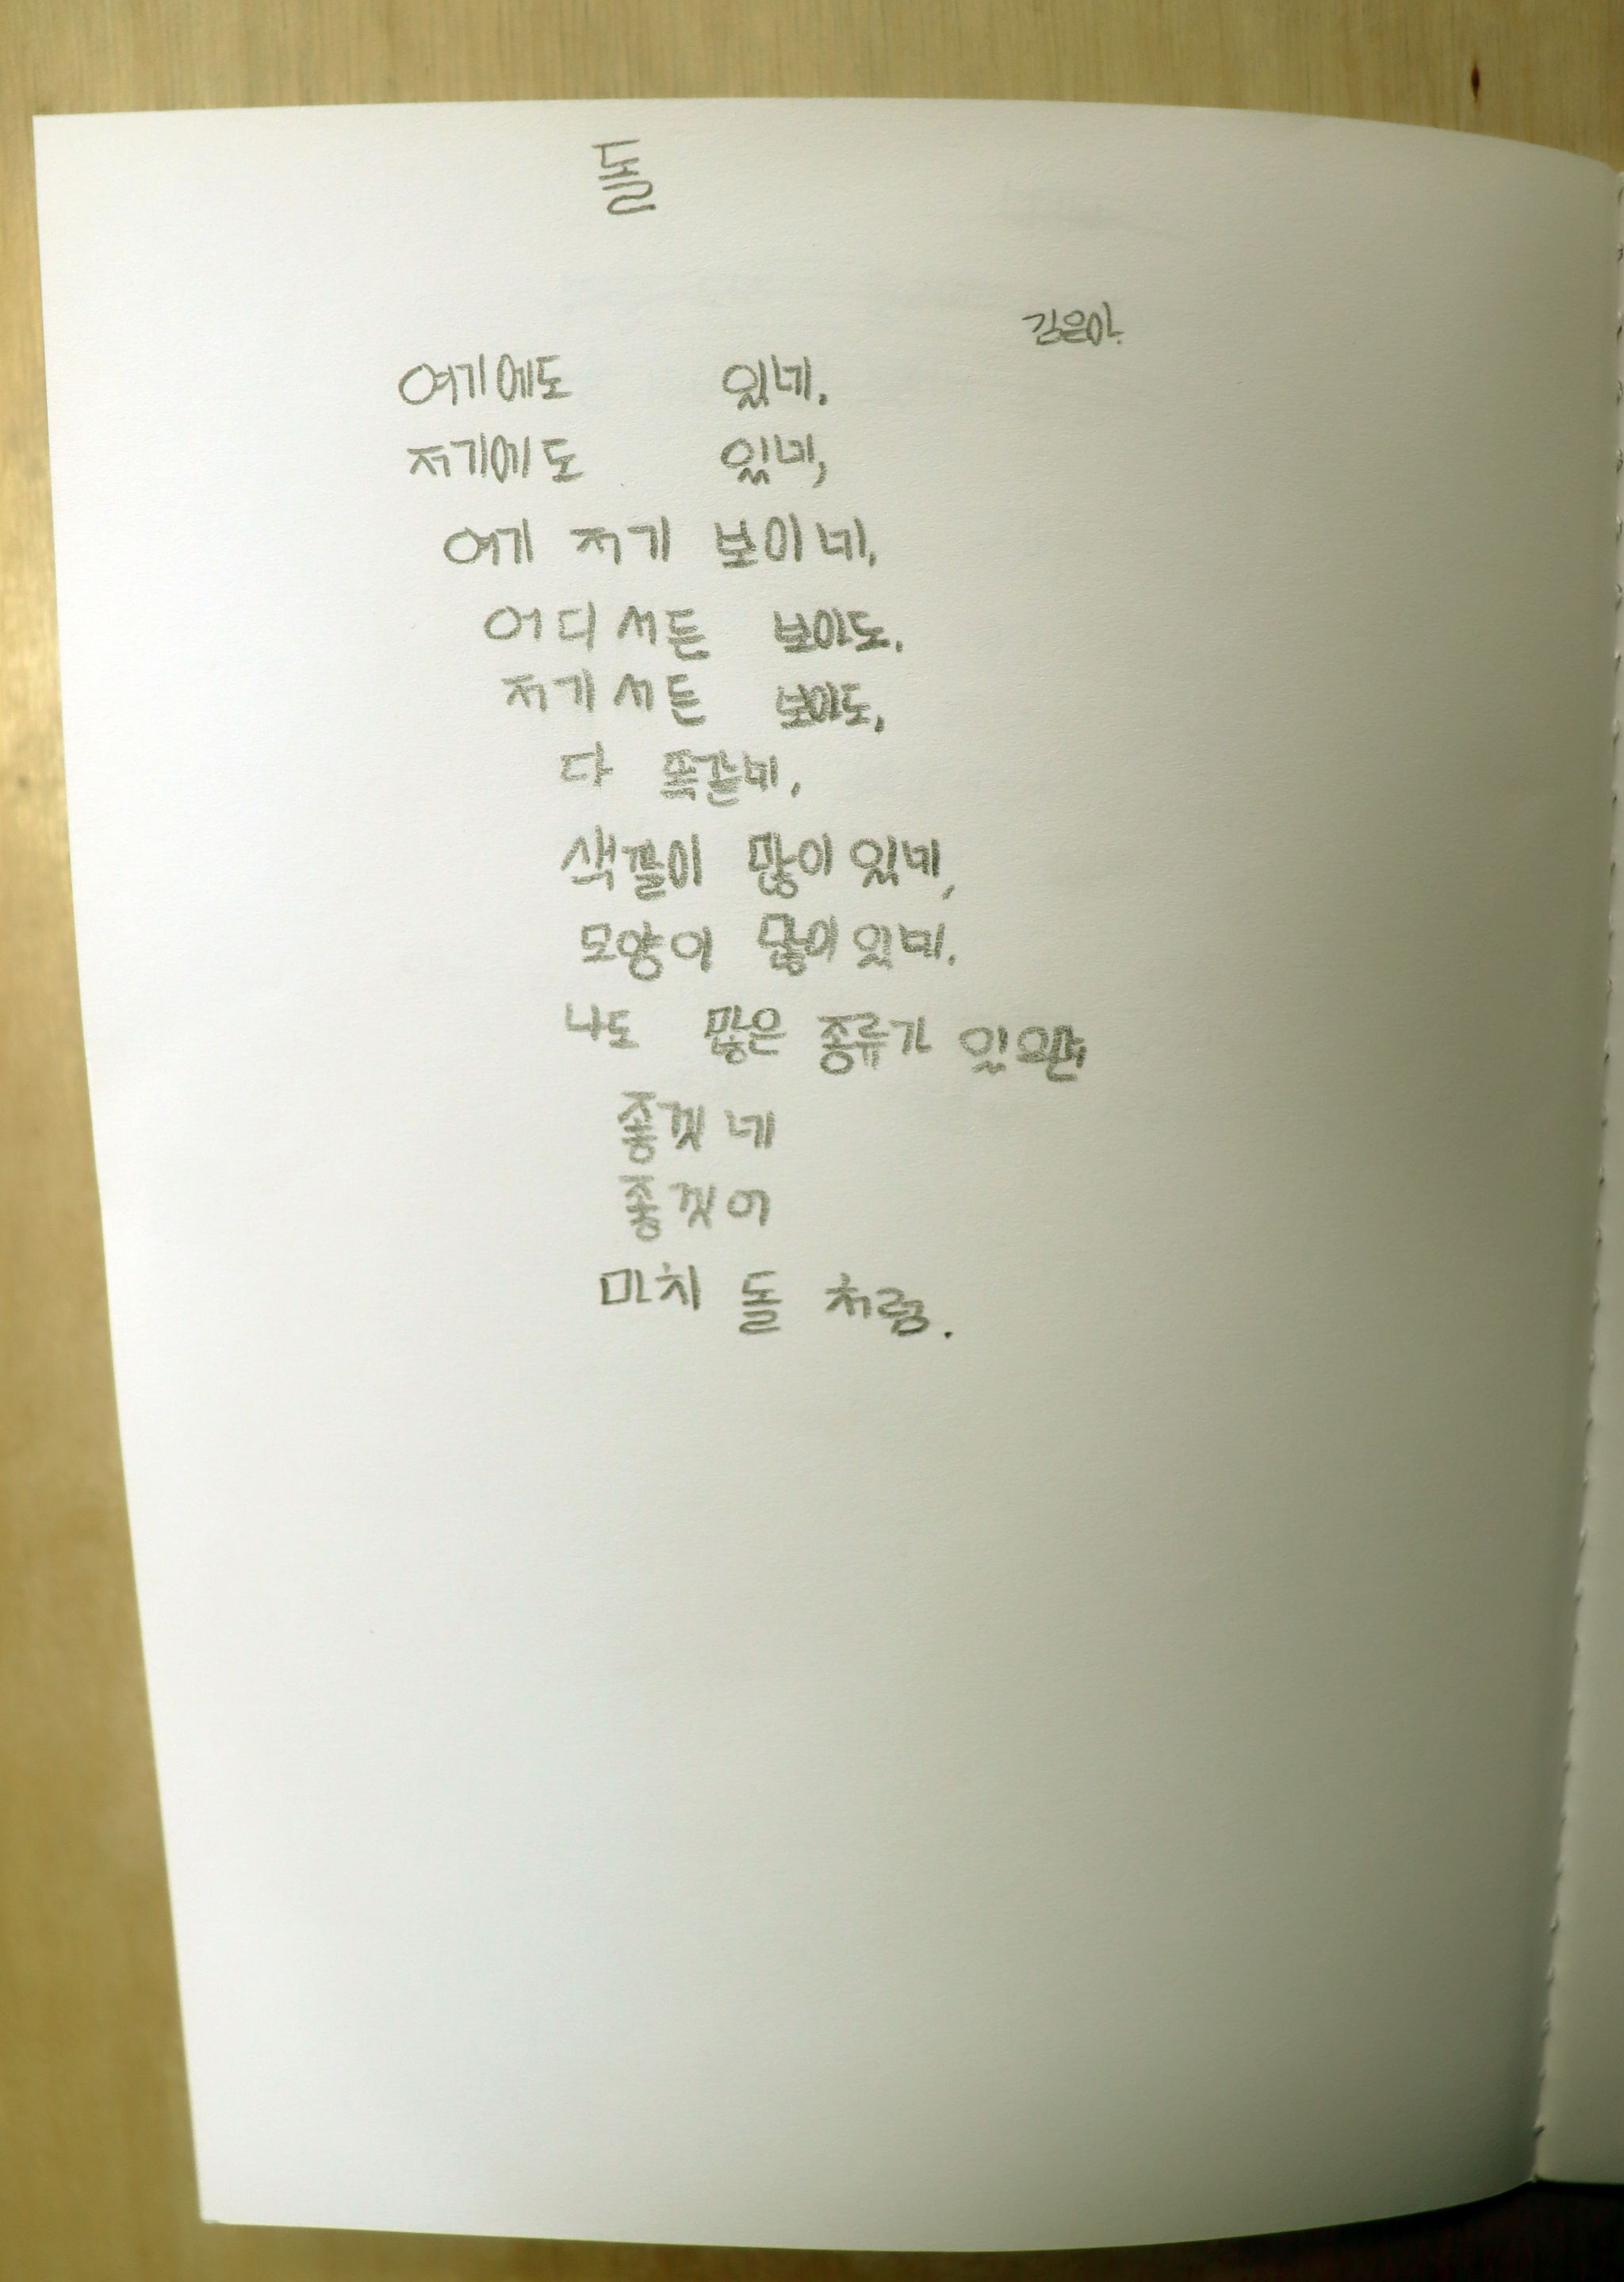 돌
김은아.
여기에도 있네.
저기에도 있네,
여기 저기 보이네.
어디서든 보아도.
저기서든 보아도.
다 똑같네.
색깔이 많이 있네,
모양이 많이 있네.
나도 많은 종류가 있으면
좋겟네
좋겟어
마치 돌 처럼.